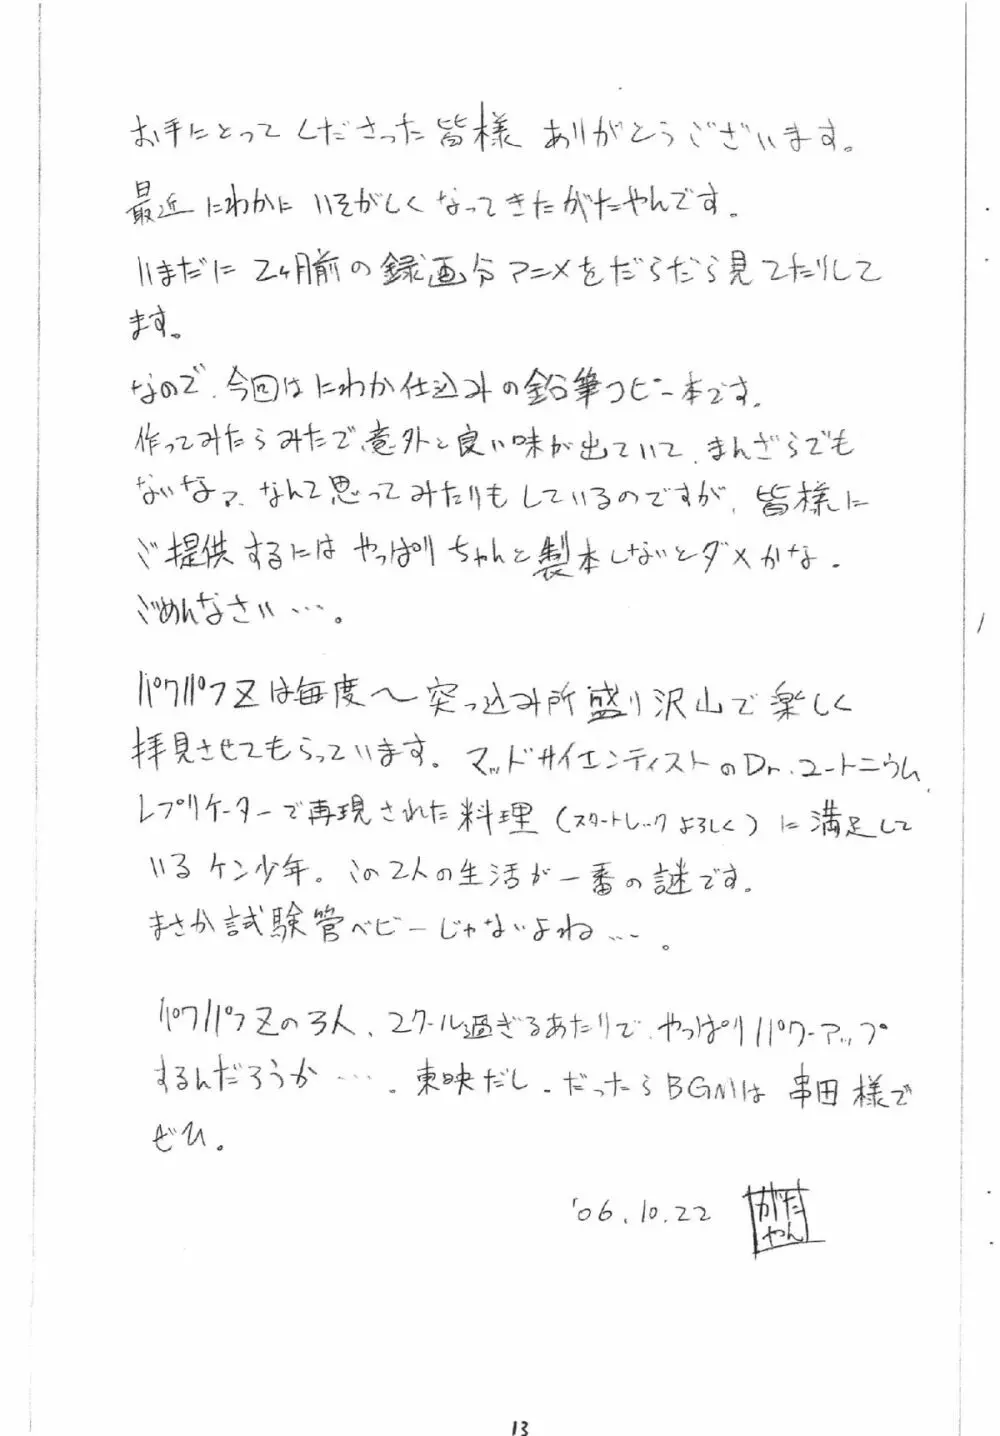 お手にとってくださった皆様 ありがとうございます。
最近にわかにいそがしくなってきたがたやんです。
いまだに2ヶ月前の録画分アニメをだらだら見てたりして
ます。
なので、今回はにわか仕込みの鉛筆コピー本です。
作ってみたらみたで、意外と良い味が出ていて、まんざらでも
ないなァ、なんて思ってみたりもしているのですが、皆様に
ご提供するにはやっぱりちゃんと製本しないとダメかな。
ごめんなさい…。
パワパフZは毎度〜突っ込み所盛り沢山で楽しく
拝見させてもらっています。マッドサイエンティストのDr.ユートニウム、
レプリケーターで再現された料理（スタートレックよろしく）に満足して
いるケン少年。この2人の生活が一番の謎です。
まさか試験管ベビーじゃないよね…。
パワパフZの3人、2クール過ぎるあたりで、やっぱりパワーアップ
するんだろうか…。東映だし。だったらBGMは串田様で
ぜひ。
'06.10.22
がた
やん
13